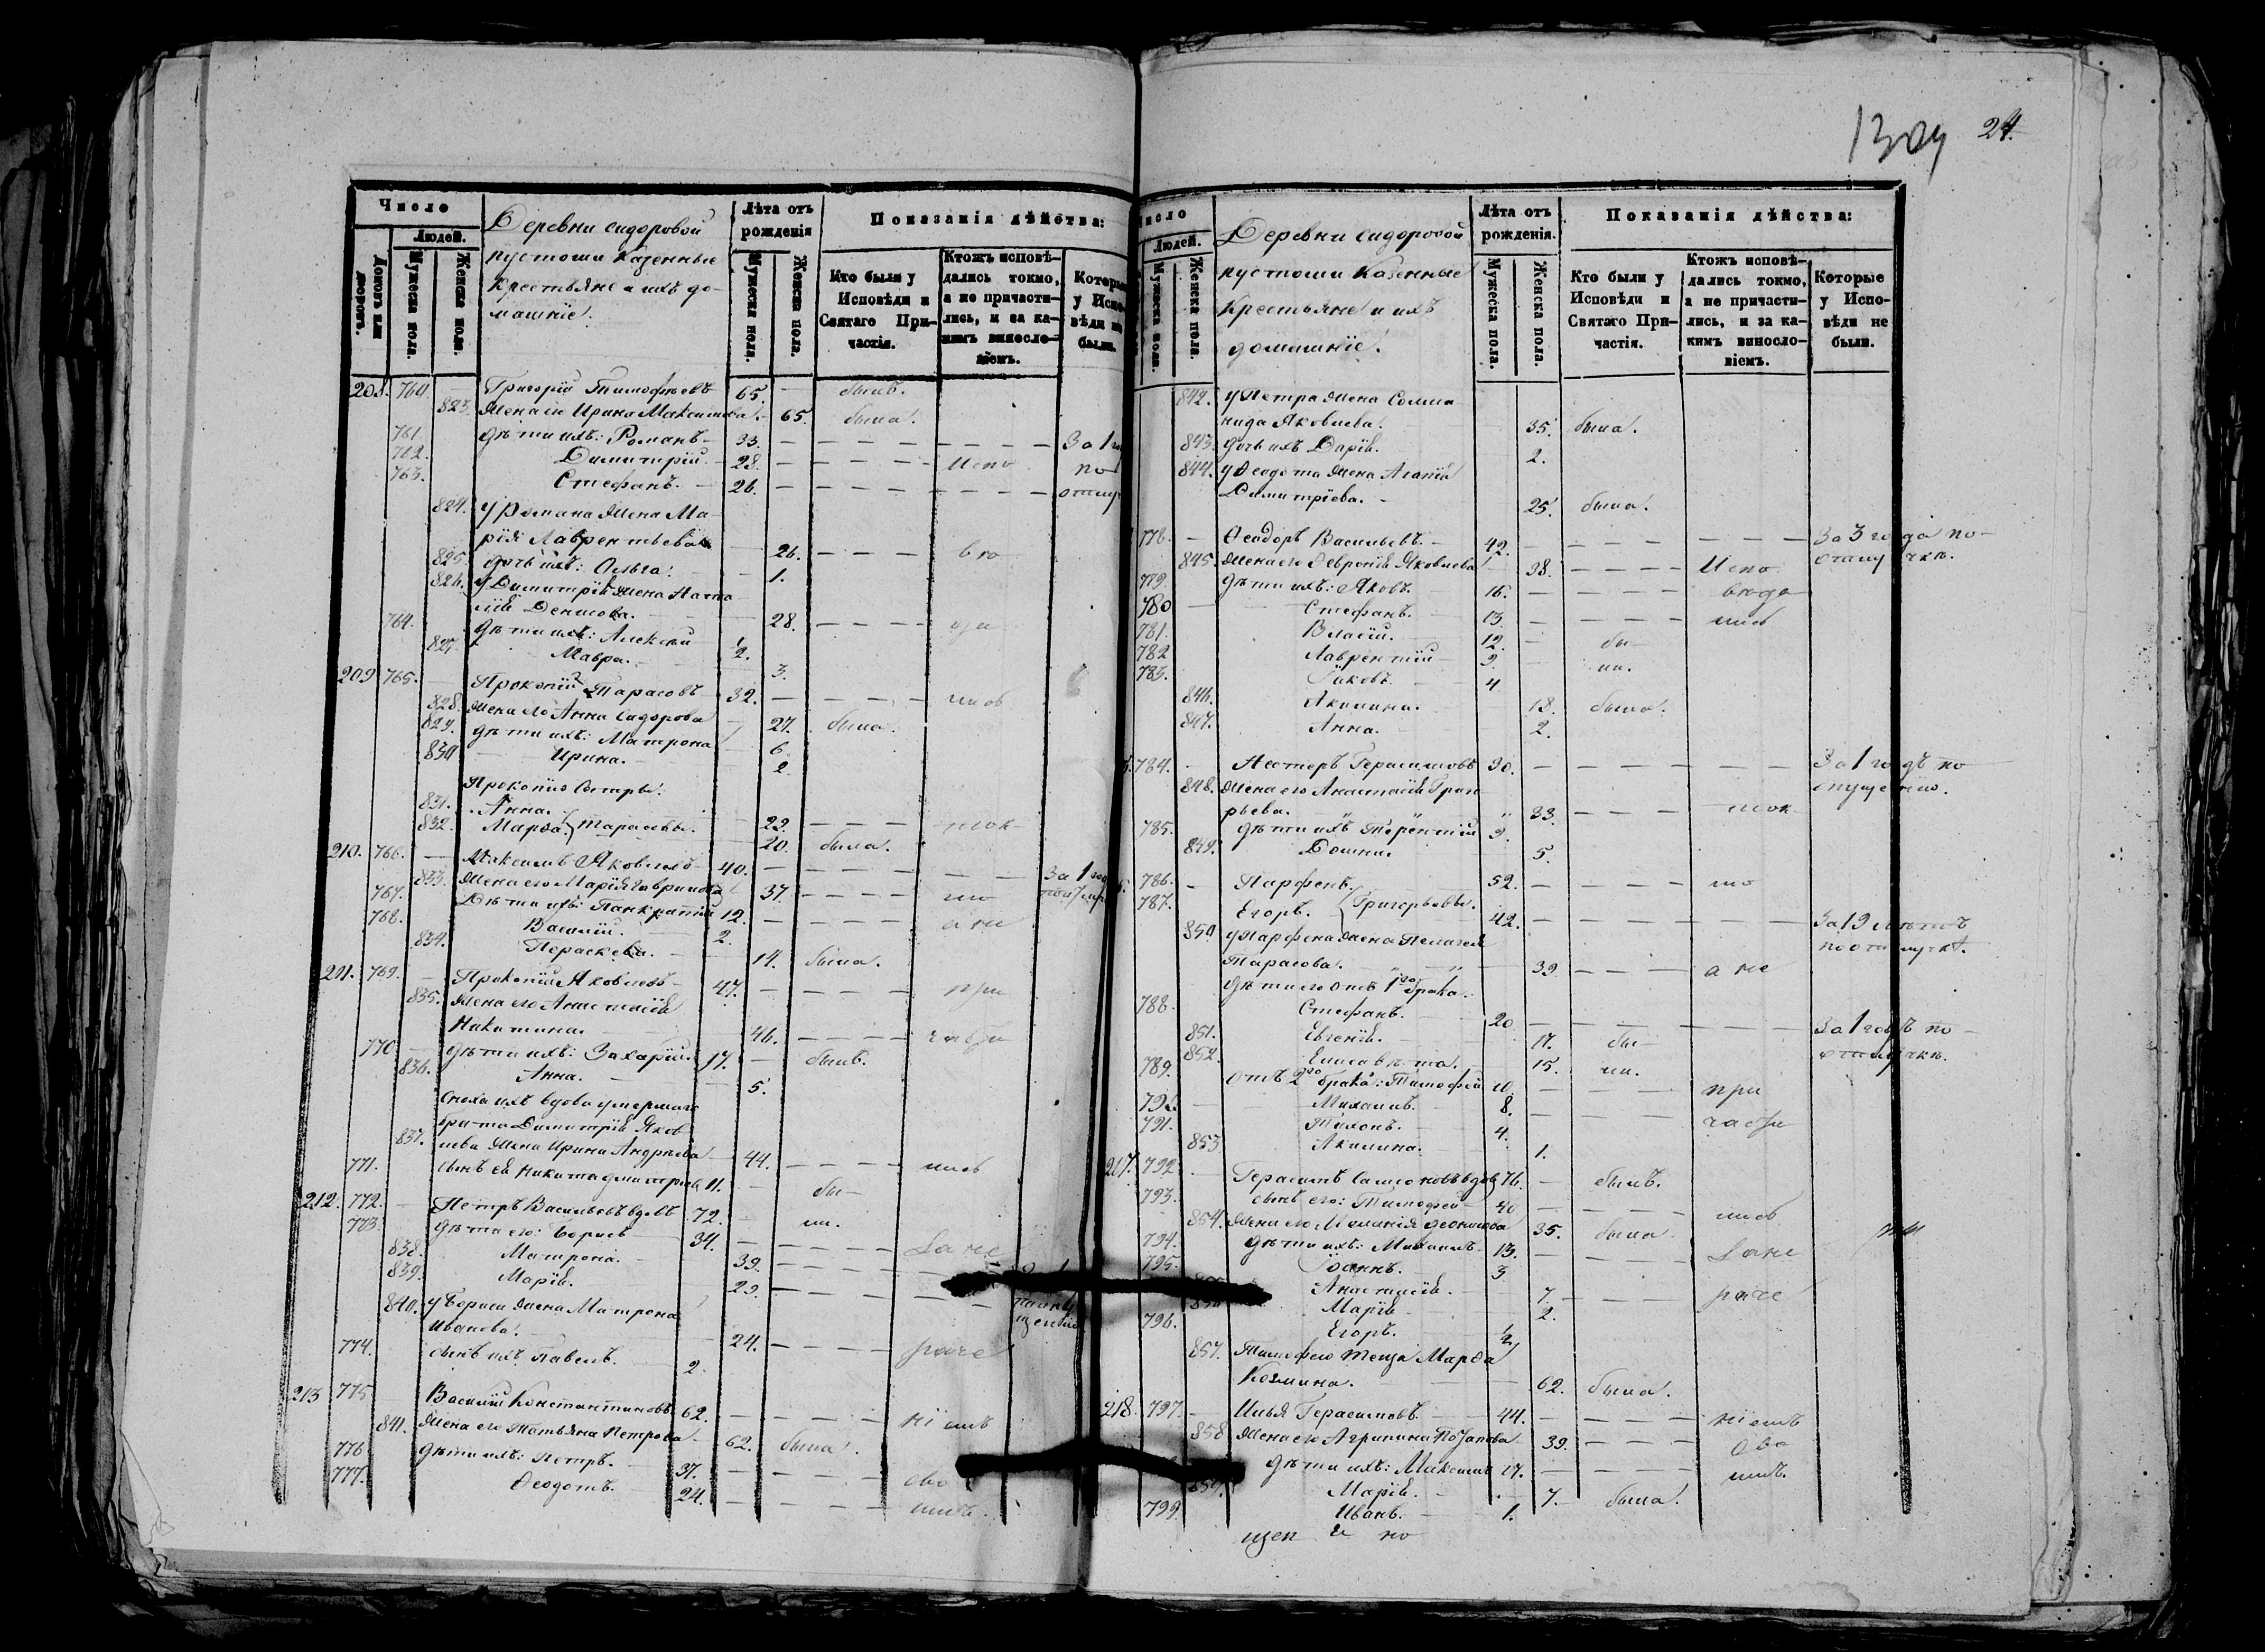 1309 24.
Число
Людей.
Домовъ или дворовъ.
Мужеска пола.
Женска пола.
Деревни Сидоровой
пустоши Казенные
Крестьяне и ихъ до-
машніе.
Лѣта отъ рожденія
Мужеска пола.
Женска пола.
Показанія дѣйства:
Кто были у Исповѣди и Святаго При-частія.
Ктожъ исповѣ-дались токмо, а не причасти-лись, и за ка-кимъ винословіемъ.
Которые у Испо-вѣди не были.
208. 760. — Григорій Тимофѣевъ 65. — былъ.
823. Жена его Ирина Максимова 65. была.
761. дѣти ихъ: Романъ 33. За 1
762. Димитрій. 28. Испо по
763. Стефанъ. 26.
824. у Романа жена Ма-
рія Лаврентьева 26. вѣ
825. дочь ихъ: Ольга. 1.
826. у Димитрія жена Ната-
лія Денисова. 28.
764. дѣти ихъ: Алексѣй 1/2.
827. Мавра. 3.
209 765. — Прокопій Тарасовъ 32. лись
828. жена его Анна Сидорова 27. была.
829. дѣти ихъ: Матрона 6.
830 Ирина. 2.
Прокопію сестры:
831. Анна. 29. ток
832. Марѳа. Тарасовы. 20. была.
210. 766. — Максимъ Яковлевъ 40. За 1
833. Жена его Марія Гавриилова 37. мо
767. Дѣти ихъ: Панкратій 12. а не
768. Василій. 2.
834. Параскева. 14. была.
211. 769. — Прокопій Яковлевъ 47. при
835. Жена его Анастасія
Никитина. 46. части
770 — дѣти ихъ: Захарій. 17. — былъ.
836. Анна. 5.
Сноха ихъ вдова умершаго
брата Димитрія Яков-
837. лева жена Ирина Андреева 44. лись
771. сынъ ея Никита Дмитріевъ 11. бы-
212. 772. — Петръ Васильевъ вдовъ 72. ли.
773. дѣти его: Борисъ 34. За не
838. Матрона. 39.
839. Марія. 29.
840. у Бориса жена Матрона
Иванова. 24. раче
774. сынъ ихъ Павелъ. 2.
213 775 Василій Константиновъ 62. ніемъ
841. Жена его Татьяна Петрова 62. была.
776 дѣти ихъ: Петръ. 37. сво
777. Ѳеодотъ. 24. имъ.
Число
Людей.
Мужеска пола.
Женска пола.
Деревни Сидоровой
пустоши Казенные
Крестьяне и ихъ
домашніе.
Лѣта отъ рожденія.
Мужеска пола.
Женска пола.
Показанія дѣйства:
Кто были у Исповѣди и Святаго При-частія.
Ктожъ исповѣ-дались токмо, а не причасти-лись, и за ка-кимъ винословіемъ.
Которые у Испо-вѣди не были.
842. у Петра жена Соломо-
нида Яковлева. 35. была.
843. дочь ихъ Дарія. 2.
844. у Ѳеодота жена Агапія
Димитріева. 25. была.
778. — Ѳеодоръ Васильевъ. 42. За 3 года по
845. Жена его Февронія Яковлева 38. Испо отлучкѣ.
779. дѣти ихъ: Яковъ. 16.
780 Стефанъ. 13. лись
781. Власій. 12. бы-
782 Лаврентій 9. ли.
783. Іаковъ. 4
846. Акилина. 18. была.
847. Анна. 2.
784. Несторъ Герасимовъ 30. За 1 годъ по
848. Жена его Анастасія Григо- опущенію.
рьева. 33. ток
785. дѣти ихъ Терентій 9.
849. Домна. 5.
786. — Парѳенъ. 52. мо
787. Егоръ. Григорьевы. 42. За 19 лѣтъ
850 у Парѳена жена Пелагея по отлучкѣ.
Тарасова. 39. а не
дѣти его отъ 1го брака.
788. Стефанъ. 20 За 1 годъ по
851. Евгенія. 17. бы- отлучкѣ.
852. Елисавета. 15. ли.
789. отъ 2го брака: Тимофей 10. при
790. Михаилъ. 8. части
791. Тихонъ. 4.
853 Акилина. 1.
217. 792 Герасимъ Самсоновъ вдовъ 76. былъ.
793. сынъ его: Тимофей 40 лись
854. Жена его Меланія Леонтьева 35. была.
794. дѣти ихъ: Михаилъ 13. За не
795. Іоаннъ. 3
Анастасія. 7. раче
Марія 2.
796. Егоръ. 1/2
857. Тимофею теща Марѳа
Козмина. 62. была.
218. 797. — Илья Герасимовъ. 44. ніемъ
858 Жена его Агрипина Потапова 39. сво
дѣти ихъ: Максимъ 17. имъ.
859. Марія. 7. была.
799 Иванъ. 1.